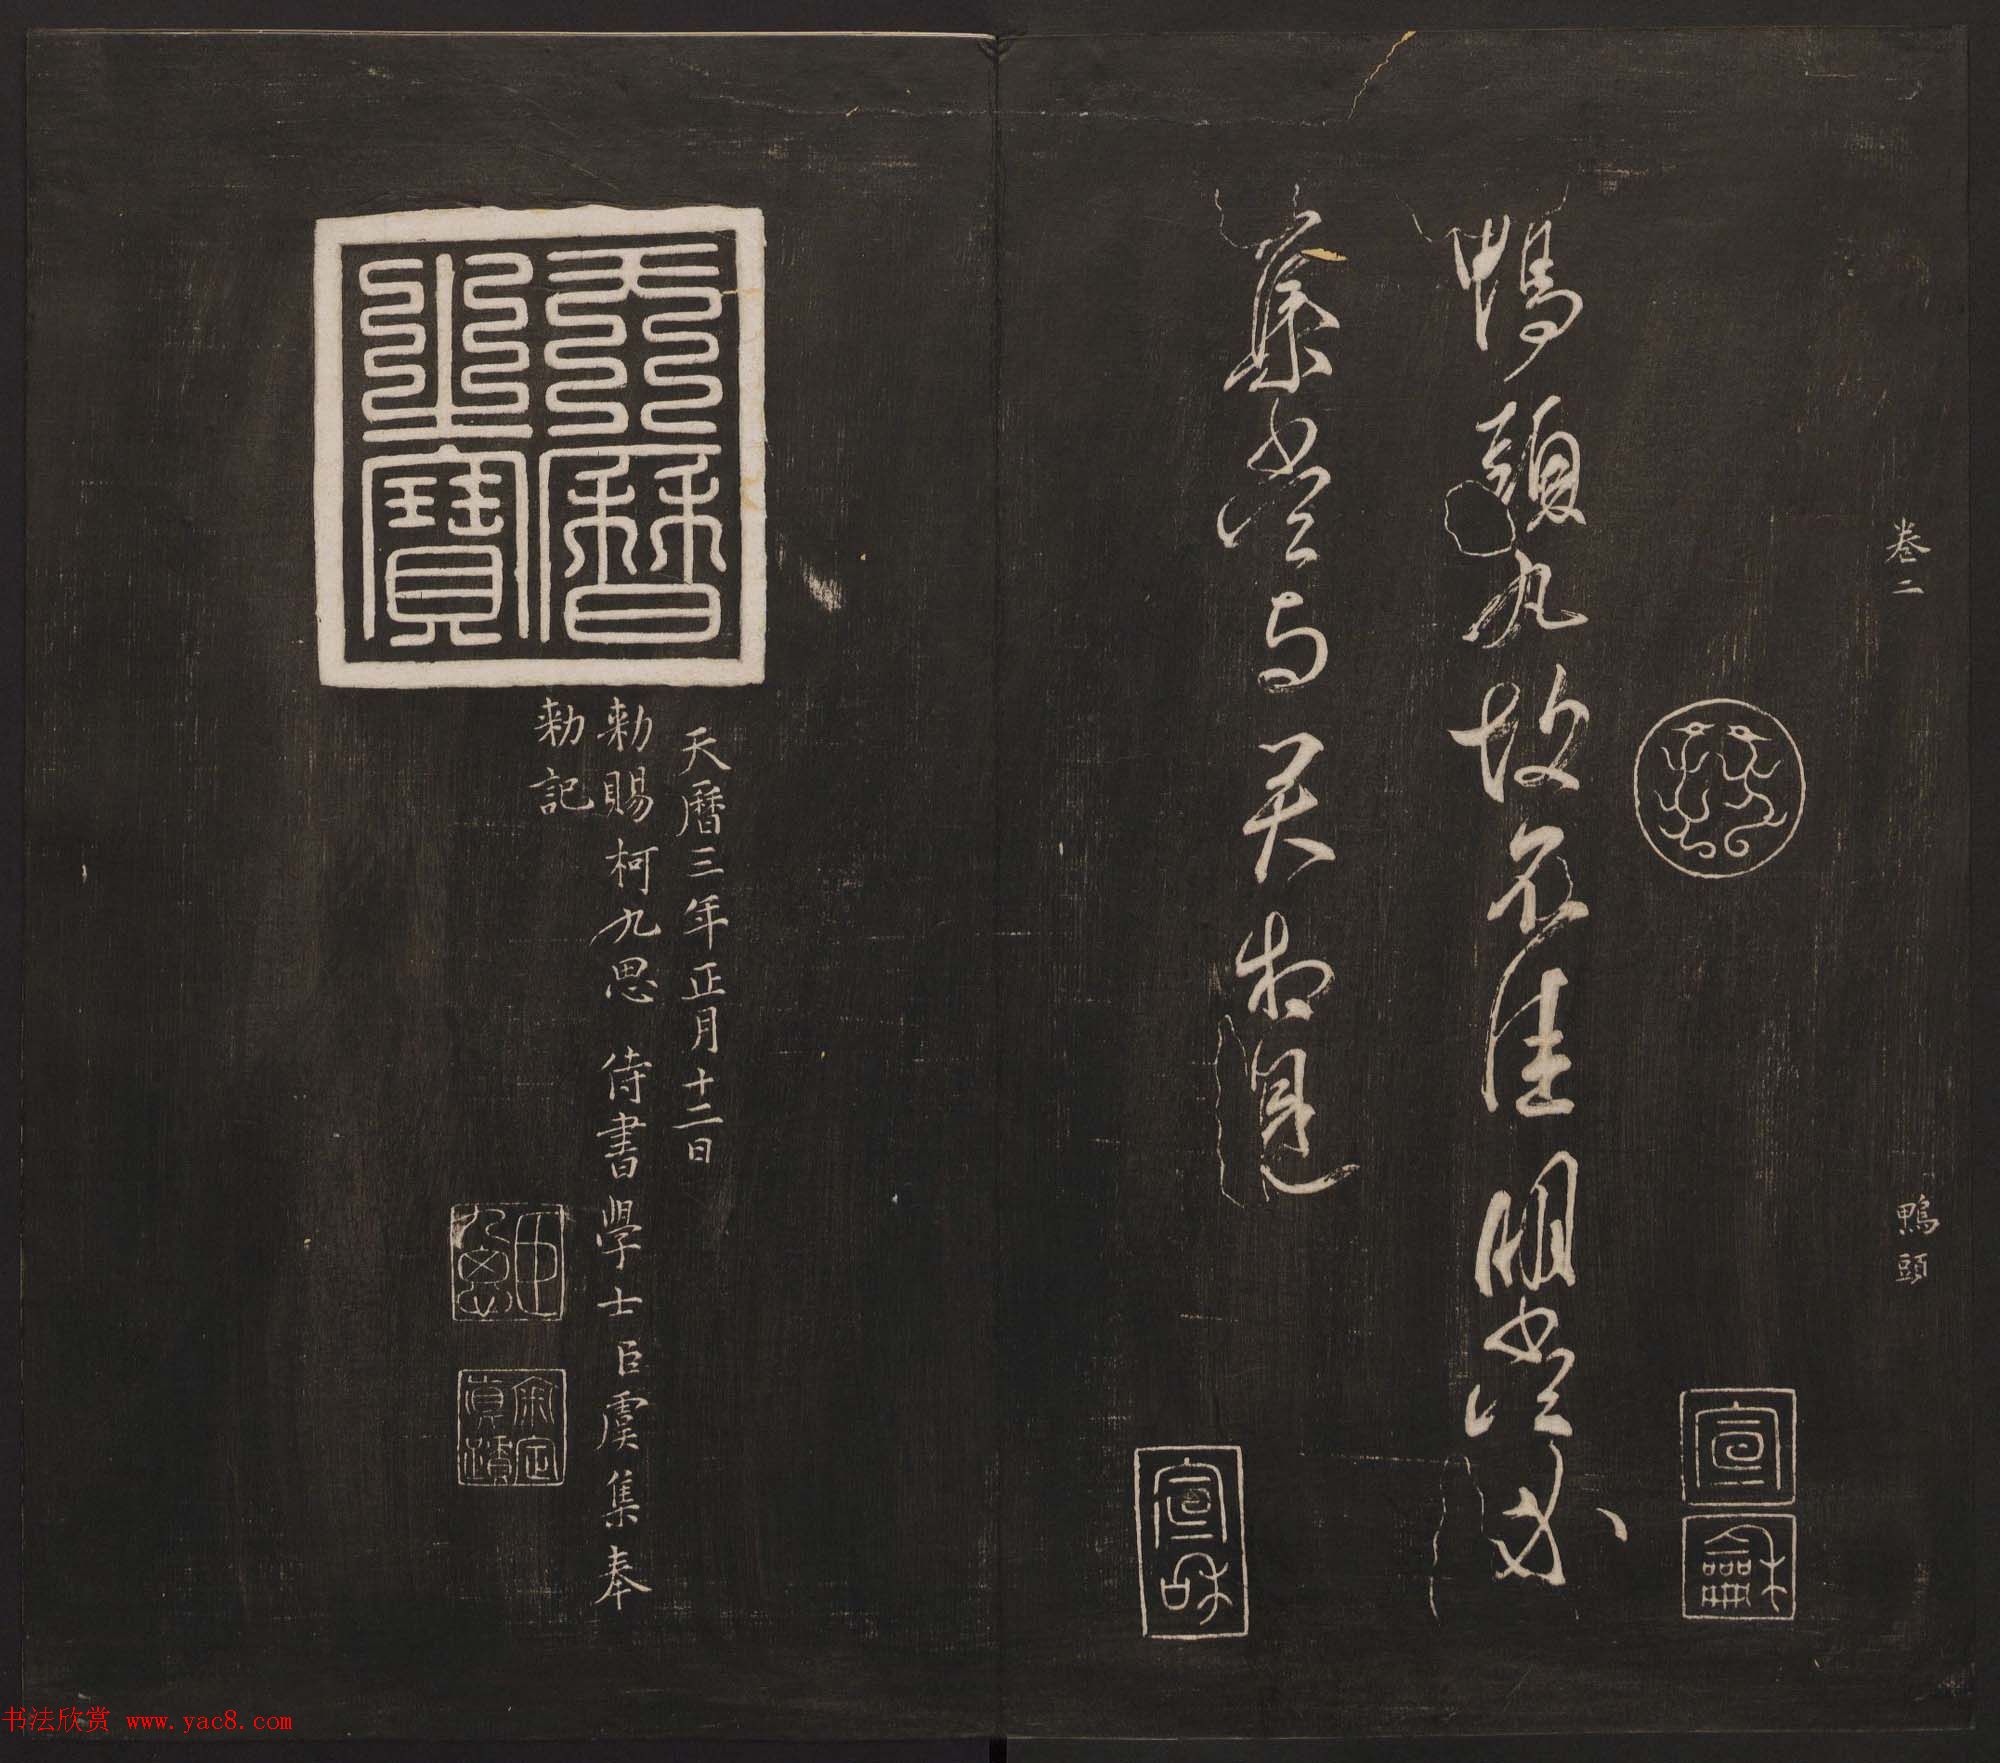 卷二
鴨頭
鴨頭丸故不佳明當必
集當与君相見
宣
龢
宣和
天曆之寶
天曆三年正月十二日
勑賜柯九思侍書學士臣虞集奉
勑記
书法欣赏 www.yac8.com